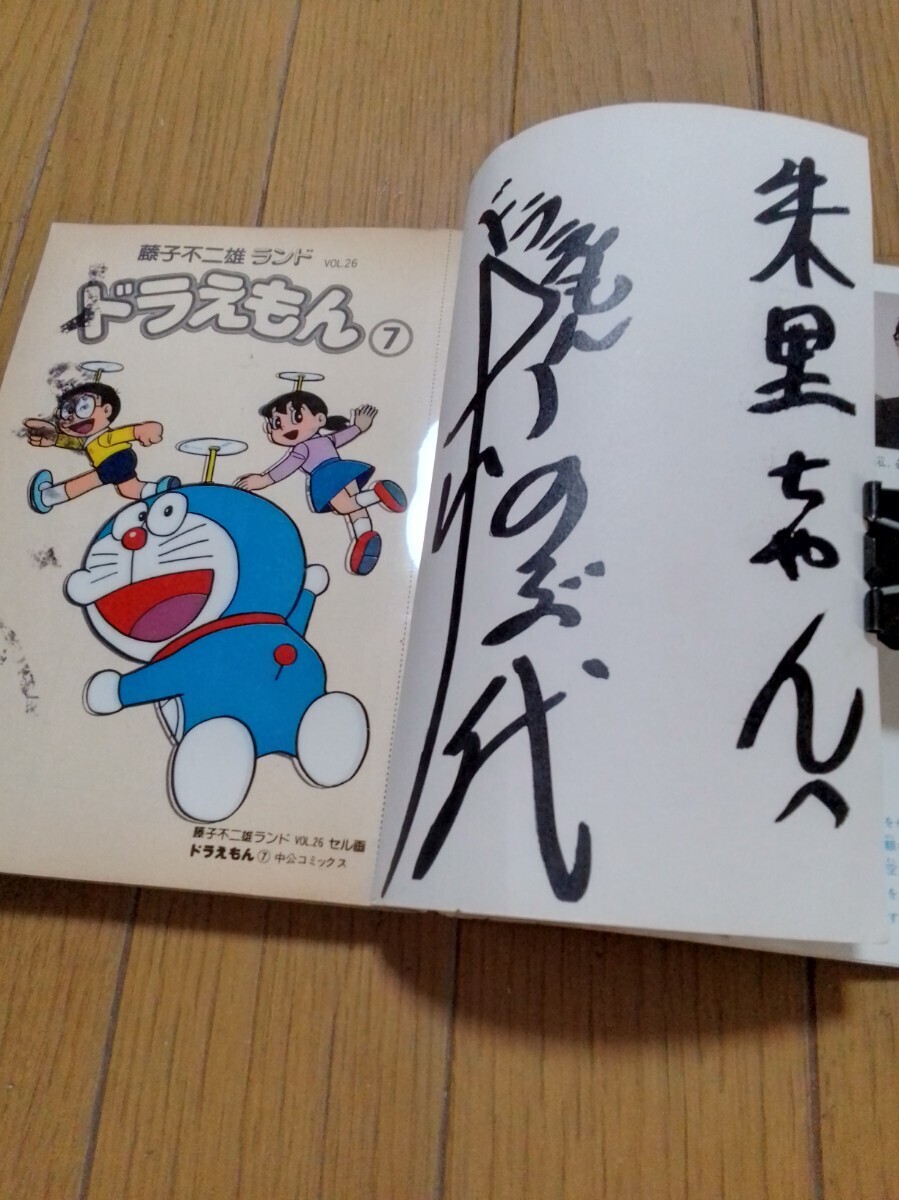 藤子不二雄 ランド VOL.26
ドラえもん 7
藤子不二雄ランド VOL.26 セル画
ドラえもん 7 中公コミックス
朱里ちゃんへ
ドラえもんー
のぶ代